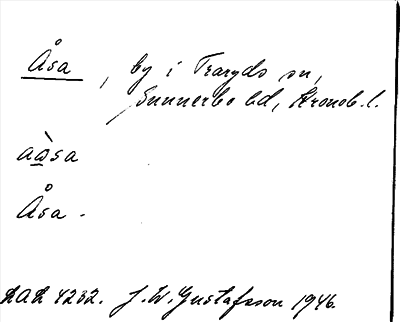 Åsa, by i Traryds sn,
Sunnerbo hd, Kronob. l.
aàsa
Åsa.
LAL 4232. J.W. Gustafsson 1946.